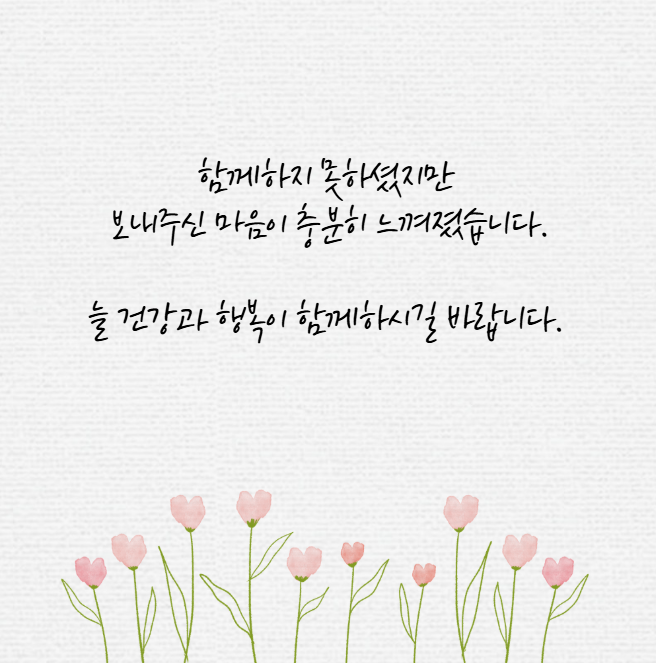 함께하지 못하셨지만
보내주신 마음이 충분히 느껴졌습니다.
늘 건강과 행복이 함께하시길 바랍니다.